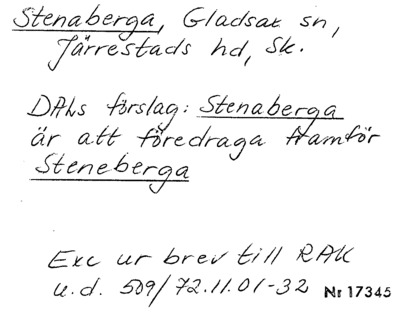 Stenaberga, Gladsax sn,
Järrestads hd, Sk.
DALs förslag: Stenaberga
är att föredraga framför
Steneberga
Exc ur brev till RAK
u.d. 509/72.11.01-32 Nr 17345